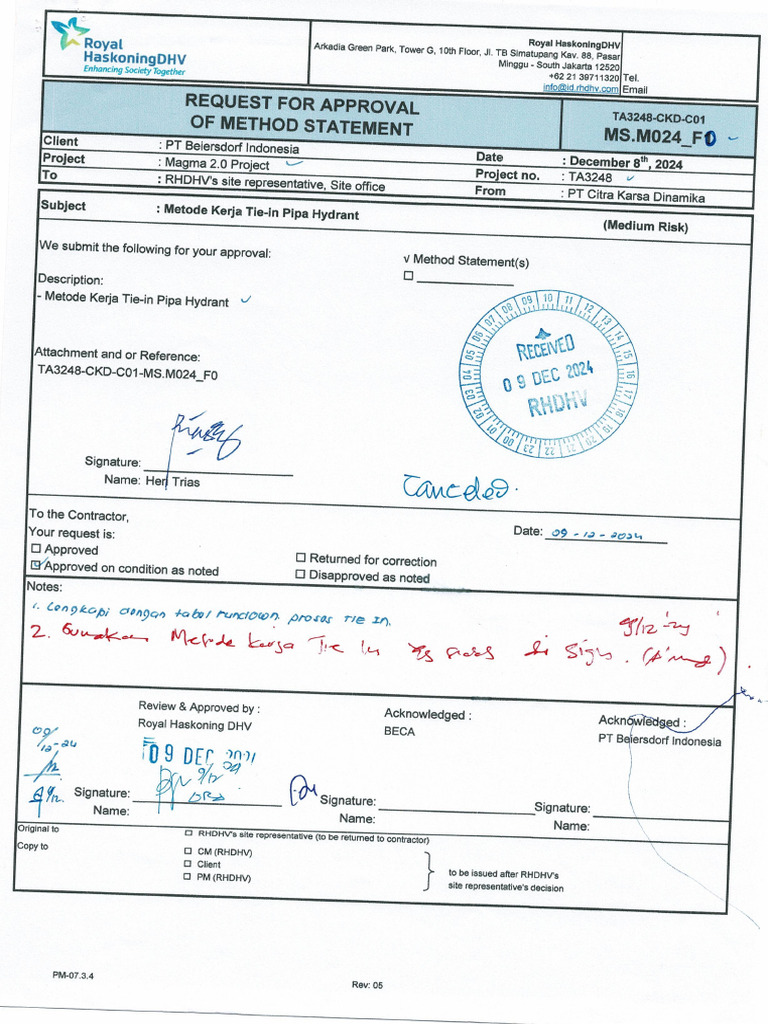 Royal
HaskoningDHV
Enhancing Society Together
Royal HaskoningDHV
Arkadia Green Park, Tower G, 10th Floor, Jl. TB Simatupang Kav. 88, Pasar
Minggu - South Jakarta 12520
+62 21 39711320 Tel.
info@id.rhdhv.com Email
REQUEST FOR APPROVAL
OF METHOD STATEMENT
TA3248-CKD-C01
MS.M024_F0
Client : PT Beiersdorf Indonesia
Project : Magma 2.0 Project
To : RHDHV's site representative, Site office
Date : December 8th, 2024
Project no. : TA3248
From : PT Citra Karsa Dinamika
Subject : Metode Kerja Tie-in Pipa Hydrant
(Medium Risk)
We submit the following for your approval:
√ Method Statement(s)
Description:
- Metode Kerja Tie-in Pipa Hydrant
Attachment and or Reference:
TA3248-CKD-C01-MS.M024_F0
RECEIVED
09 DEC 2024
RHDHV
00 01 02 03 04 05 06 07 08 09 10 11 12 13 14 15 16 17 18 19 20 21 22 23
Signature:
Name: Heri Trias
Canceled.
To the Contractor,
Your request is:
Date: 09-12-2024
Approved
Approved on condition as noted
Returned for correction
Disapproved as noted
Notes:
1. Lengkapi dengan tabel rundown proses TIE IN.
9/12-24
2. Gunakan Metode kerja Tie In yg sudah di Sign.
Review & Approved by :
Royal Haskoning DHV
Acknowledged :
BECA
Acknowledged :
PT Beiersdorf Indonesia
09/12-24
09 DEC
9/12
Signature:
Name:
Signature:
Name:
Signature:
Name:
Original to
RHDHV's site representative (to be returned to contractor)
Copy to
CM (RHDHV)
Client
PM (RHDHV)
to be issued after RHDHV's
site representative's decision
PM-07.3.4
Rev: 05